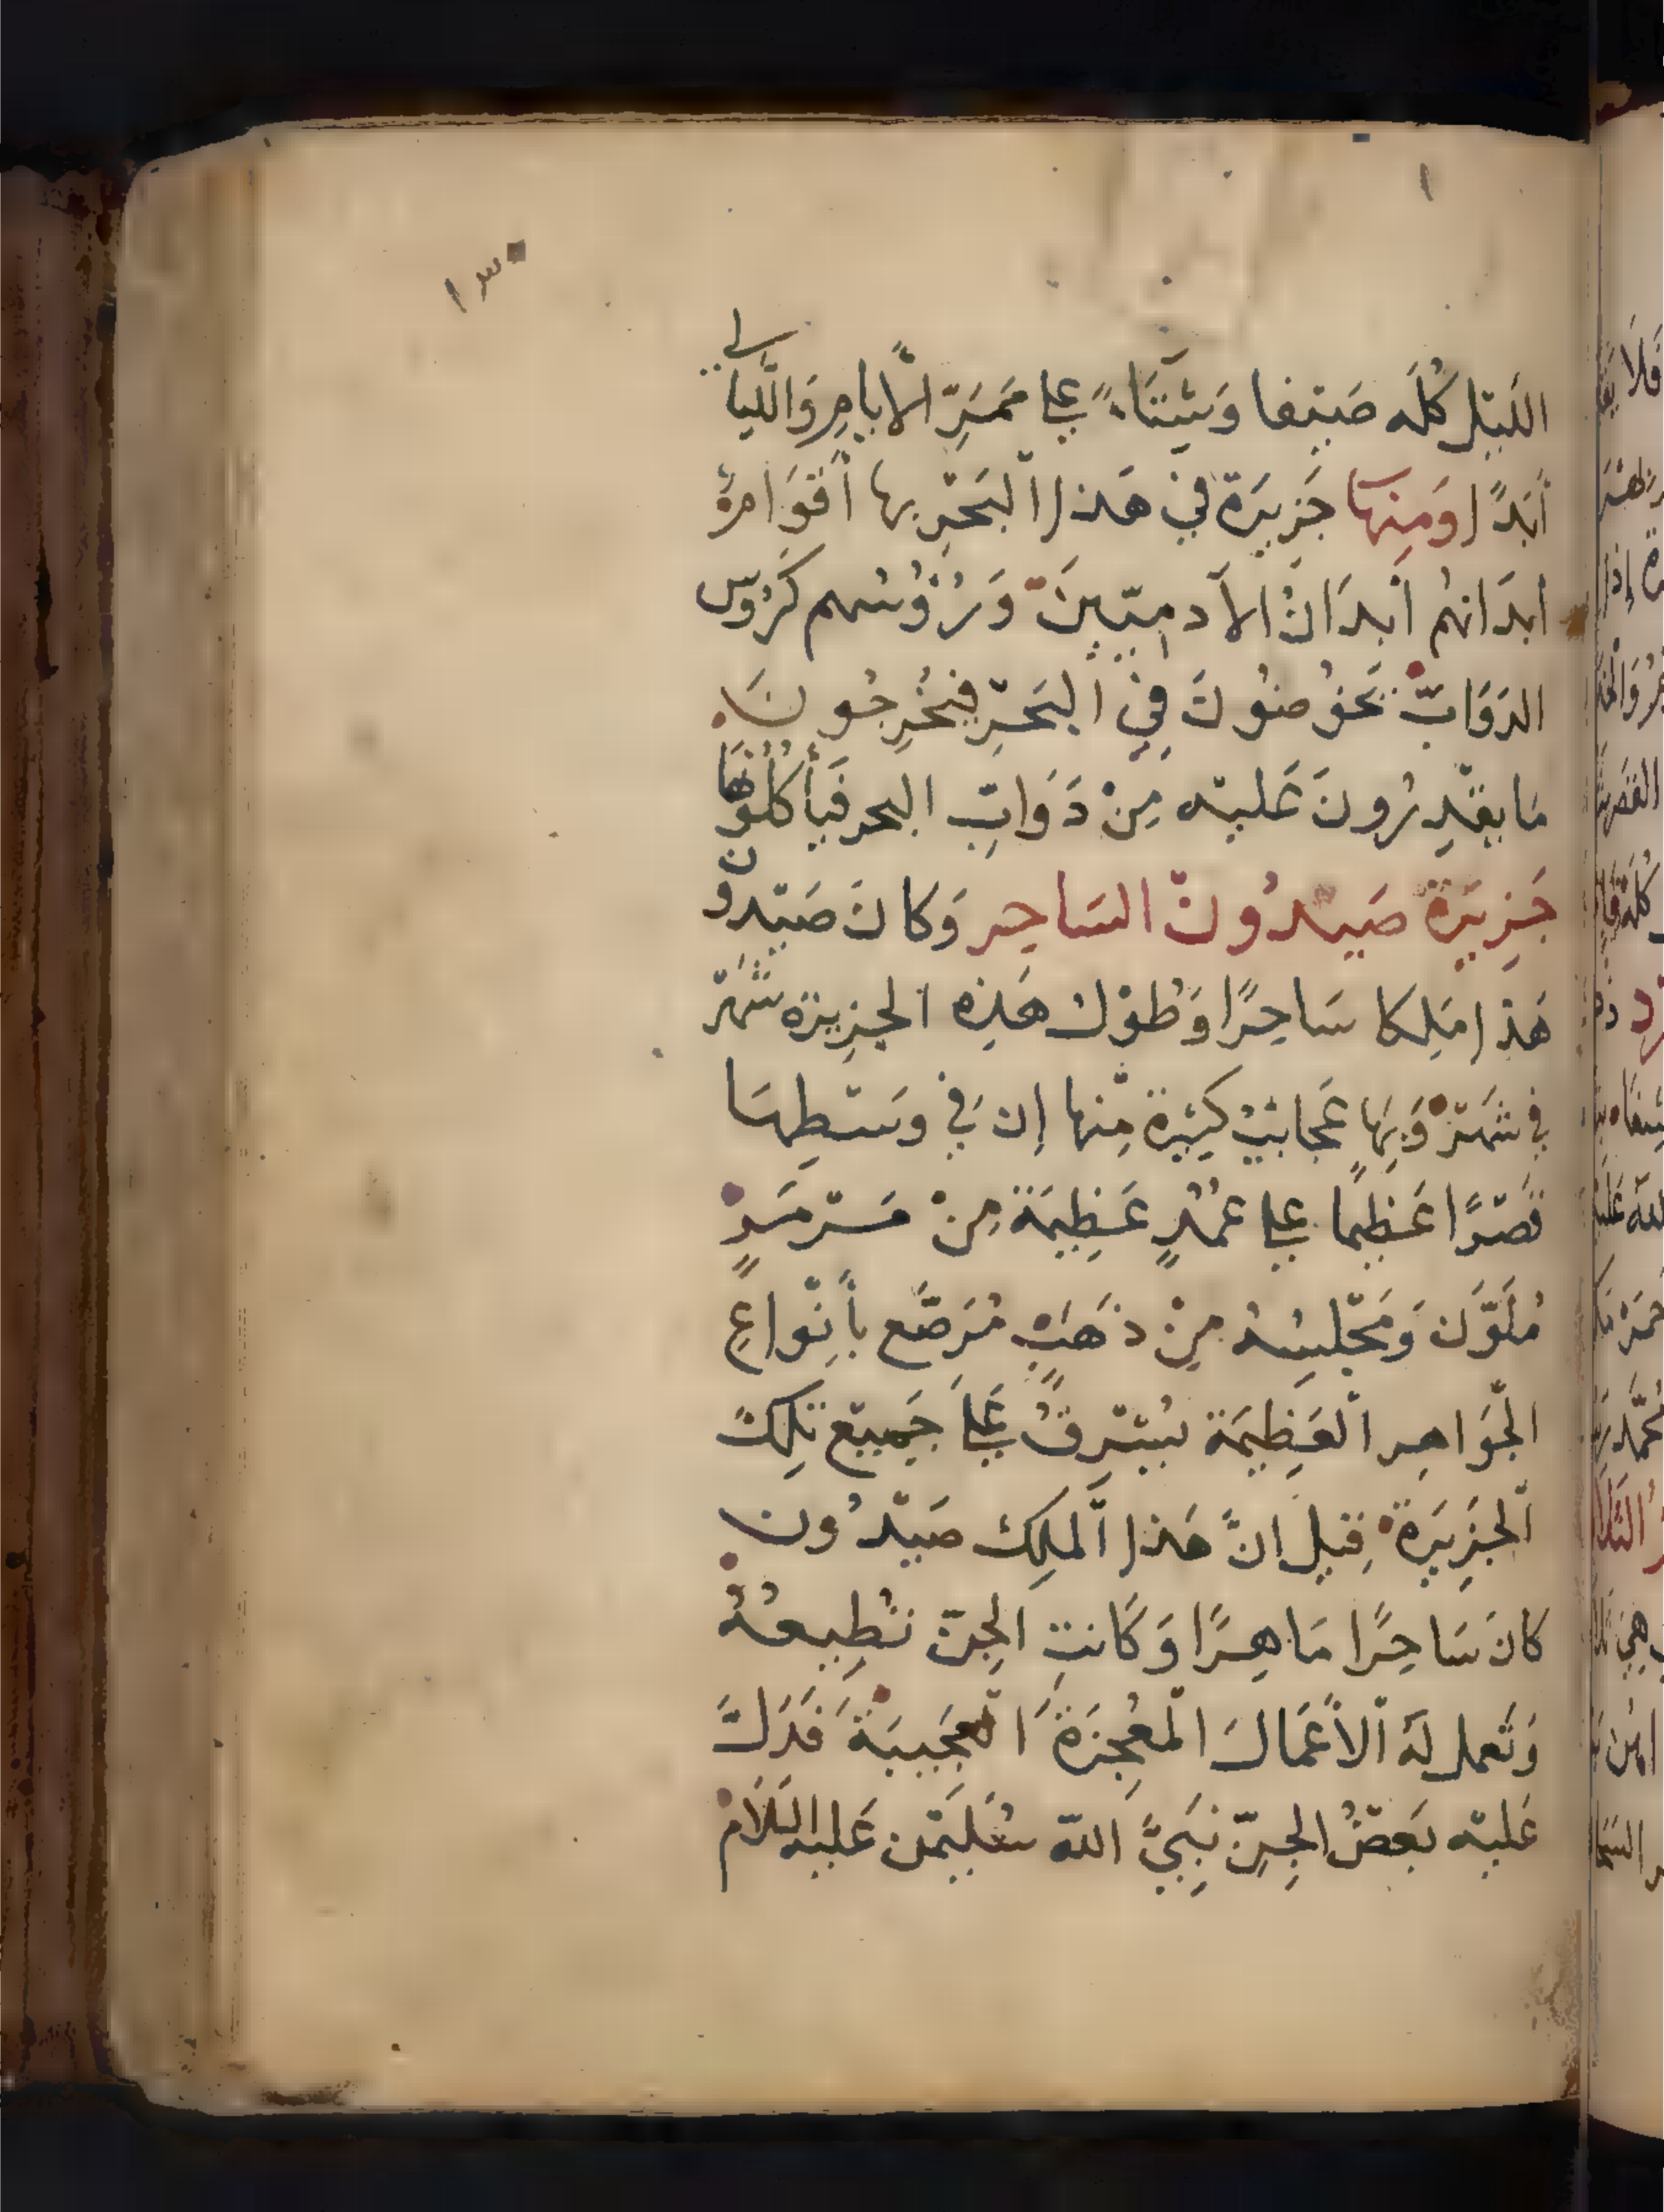 ١٣٠
اللَيْل كُلَه صَيْفا وَشِتَاءً علي مَمَرِّ الْأَيامِ وَاللَّيالي
أَبَدًا وَمِنها جَزِيرَة فيْ هَذا اْلبَحْرِ بها أَقوَامٌ
أبدَانهُم أَبدَانُ الآدمِيّيْنَ وَرُؤُسُهم كَرُؤس
الدَوَابّ يَخُوْضُوُنَ فِيْ اْلبَحْرِ فيُخْرِجُونَ
مَا يقْدِرُونَ عَليْه مِنْ دَوَابِّ البحر فَيأْكُلُوْنَهَا
جَزِيرَة صَيْدُونْ السَاحِر وَكانَ صَيْدُون
هَذا مَلِكا سَاحِرًا وَطُوْل هَذِه الجزِيرَة شَهْر
في شَهْرْ وَبِهَا عَجايبٌ كَثِيْرة مِّنها إن في وسَطِهَا
قَصْرًا عَظِيمًا علي عُمُدٍ عَظِيمَة مِنْ مَرْمَرٍ
مُلَوَّن وَمَجْلِسُهُ مِنْ ذهَبٍ مُرَصَّع بأَنْواعِ
الْجوَاهِر الْعَظِيمَة يُشْرِفُ عَليَ جَمِيْع تِلكَ
اْلجَزِيرَة قِيل انَّ هَذا اْلملِك صَيْدُون
كانَ سَاحِرًا مَاهِرًا وَكَانتِ الجِنّ تُطِيعُهُ
وَتَعمل لهَ اْلأَعمَالَ الْمعُجِزَة الْعَجِيبَةَ فَدَلَّ
عَليْه بَعضُ الجِنّ نَبِيَّ اللّه سُلَيْمٰن عَليه السَلَامْ